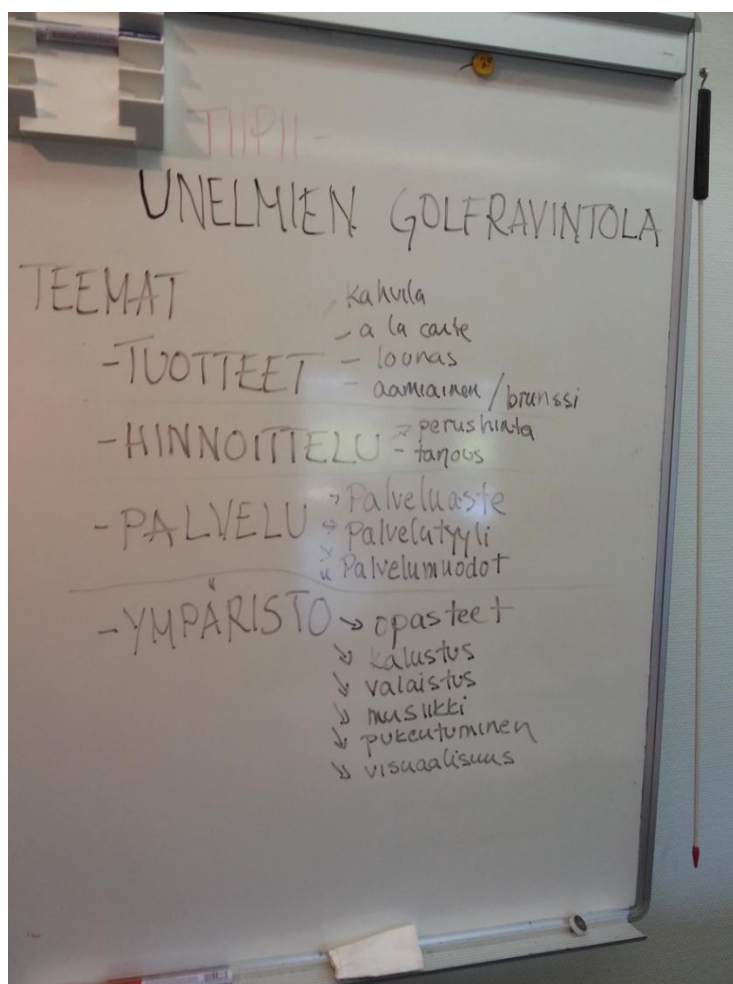 TIIPII -
UNELMIEN GOLFRAVINTOLA
TEEMAT
kahvila
-TUOTTEET - a la carte
- lounas
- aamiainen / brunssi
-HINNOITTELU -> perushinta
- tarjous
-PALVELU -> Palveluaste
-> Palvelutyyli
-> Palvelumuodot
-YMPÄRISTO -> opasteet
-> kalustus
-> valaistus
-> musiikki
-> pukeutuminen
-> visuaalisuus